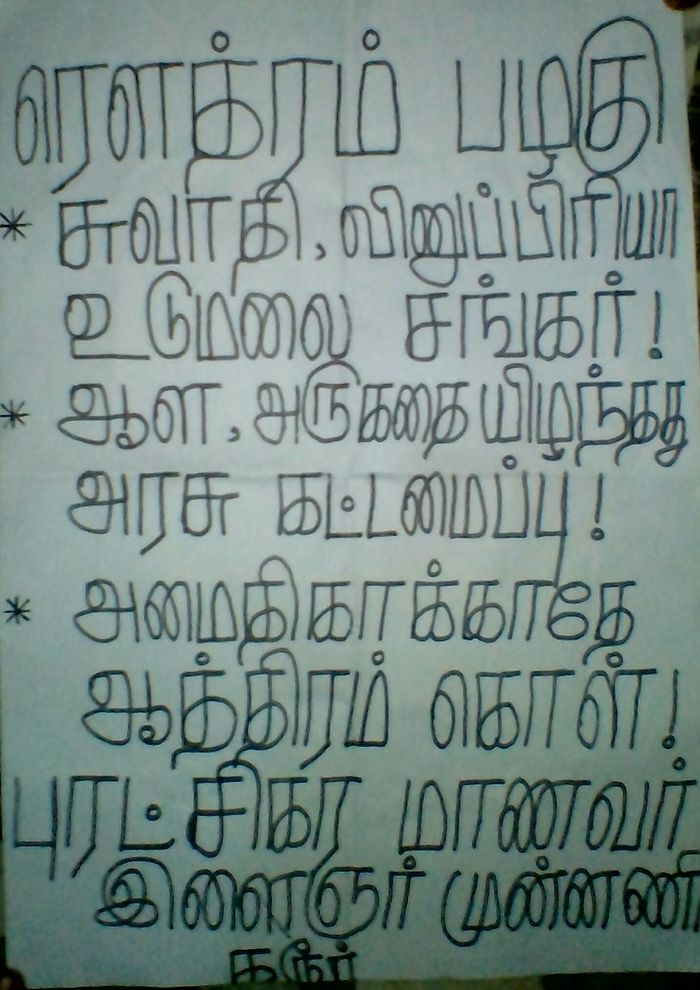 ரௌத்ரம் பழகு
* சுவாதி, வினுப்பிரியா
உடுமலை சங்கர்!
* ஆள, அருகதையிழந்தது
அரசு கட்டமைப்பு!
* அமைதிகாக்காதே
ஆத்திரம் கொள்!
புரட்சிகர மாணவர்
இளைஞர் முன்னணி
கரூர்